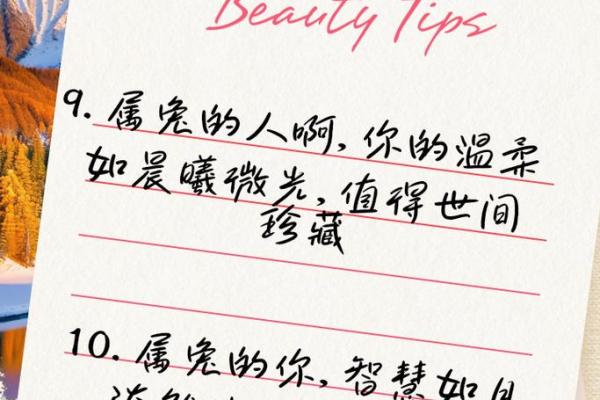 Beauty Tips
9. 属兔的人啊,你的温柔
如晨曦微光,值得世间
珍藏
10. 属兔的你,智慧如